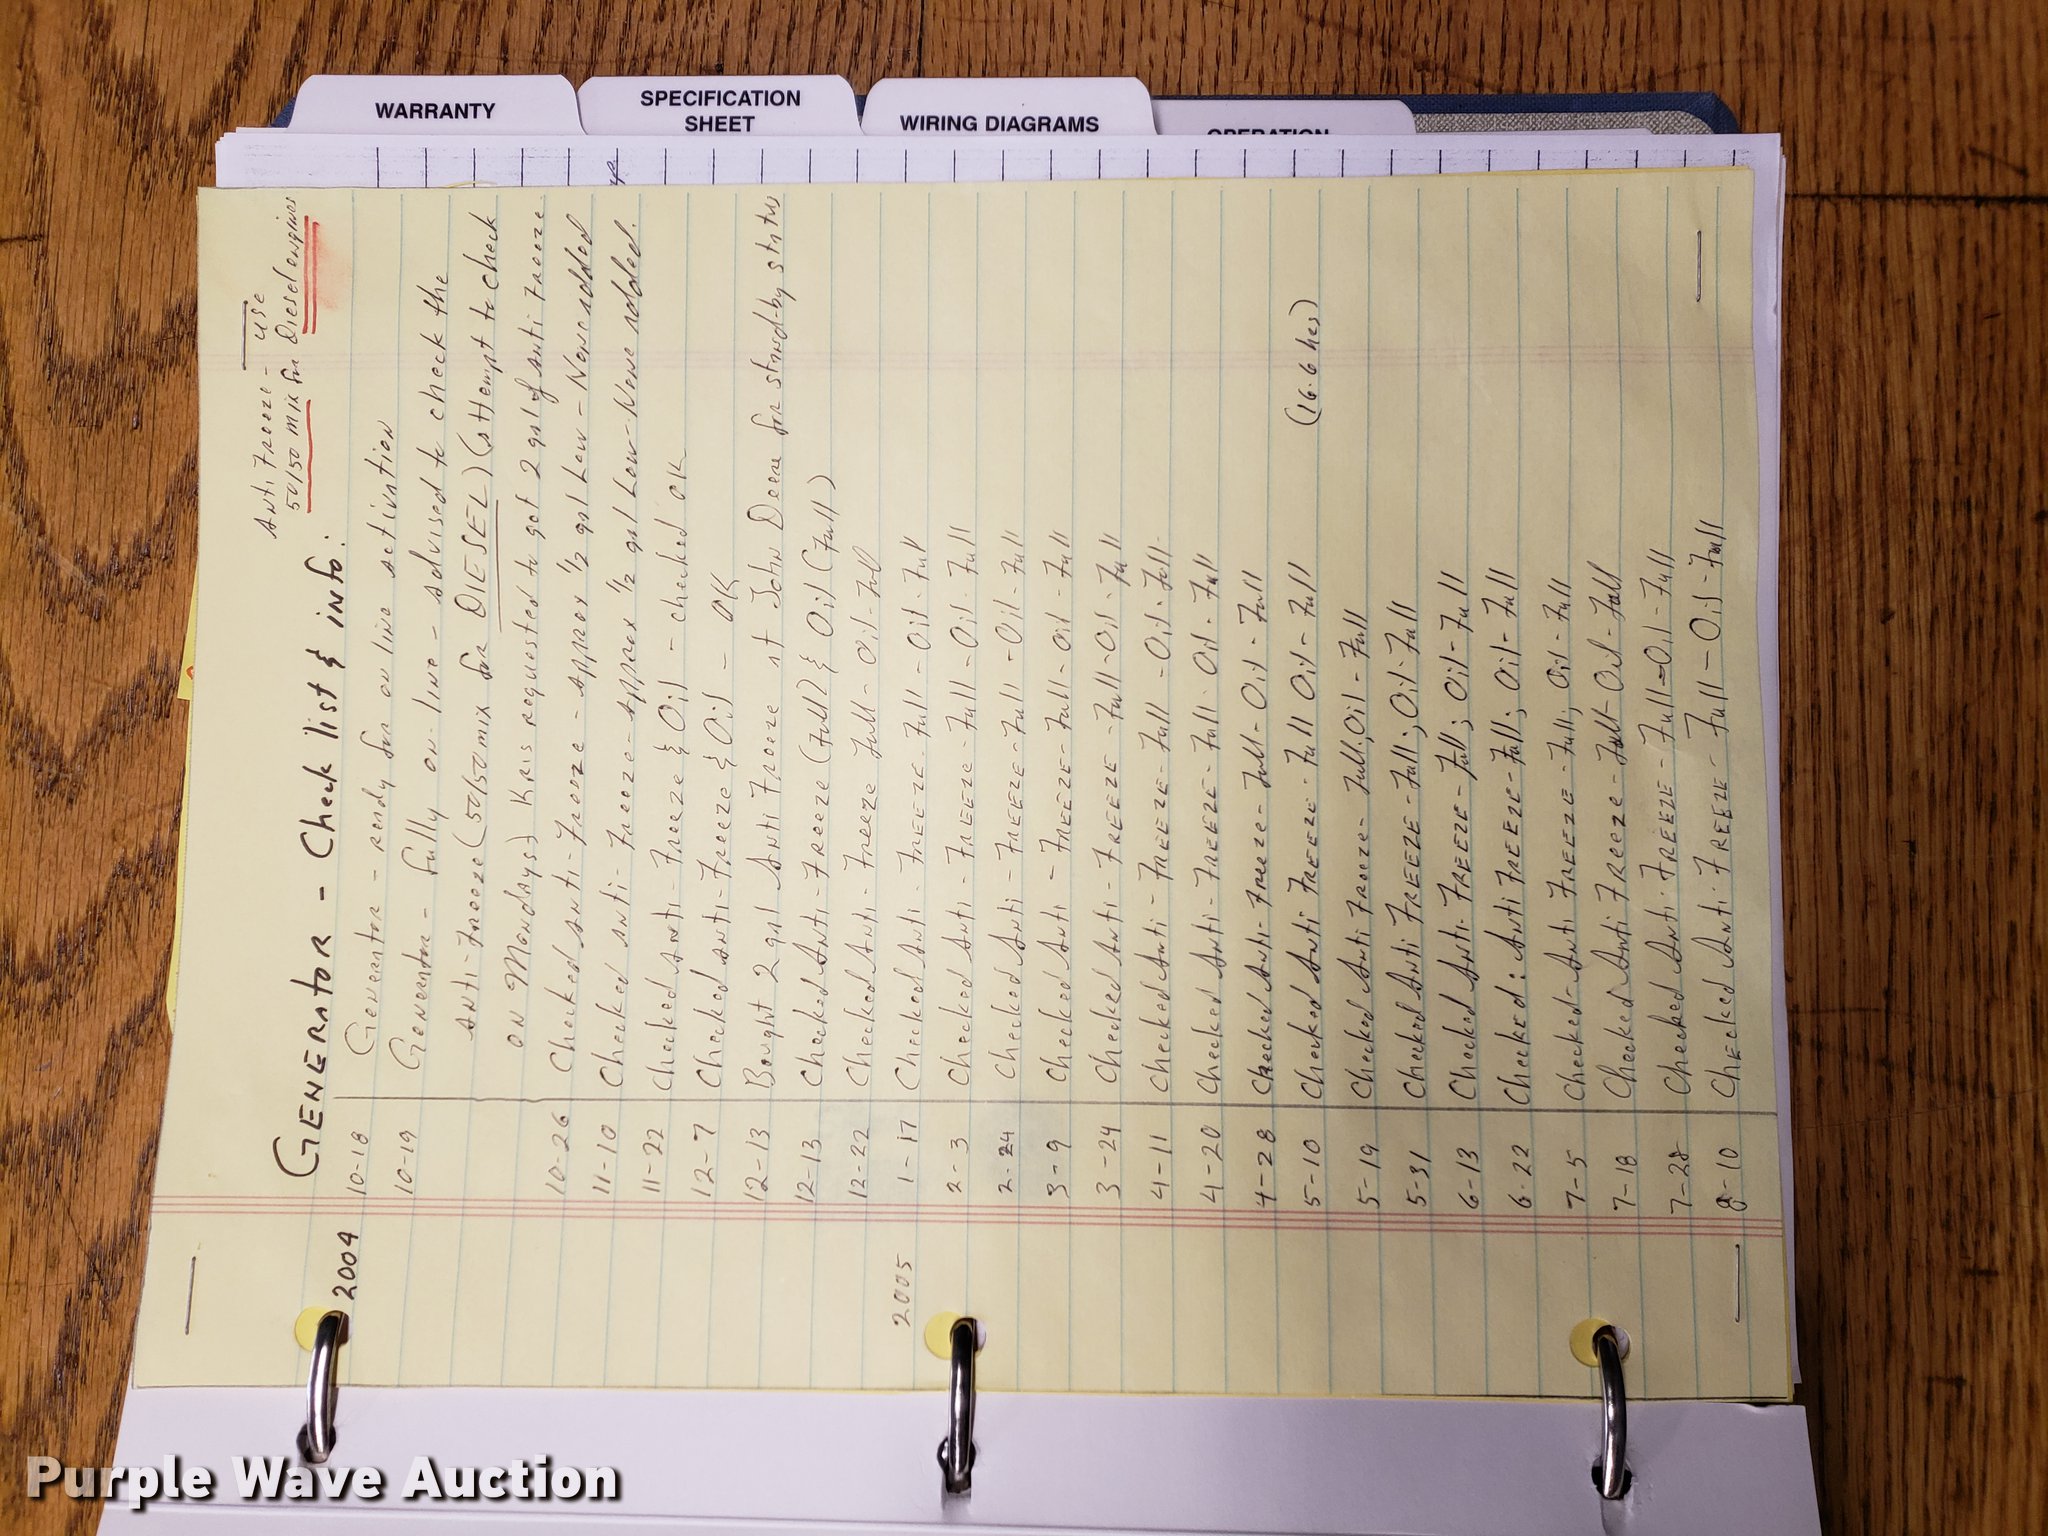 WARRANTY
SPECIFICATION
SHEET
WIRING DIAGRAMS
OPERATION
Anti Freeze - use
50/50 mix for Diesel engines
GENERATOR - Check list & info:
2004
10-18 Generator - ready for on line activation
10-19 Generator - fully on-line - advised to check the
anti-freeze (50/50 mix for DIESEL) (attempt to check
on Mondays) Kris requested to get 2 gal of anti freeze
10-26 Checked anti-freeze - approx 1/2 gal Low - None added
11-10 Checked anti-freeze - approx 1/2 gal Low - None added.
11-22 Checked Anti-Freeze & Oil - checked OK
12-7 Checked anti-Freeze & Oil - OK
12-13 Bought 2 gal Anti Freeze at John Deere for stand-by status
12-13 Checked Anti-Freeze (Full) & Oil (Full)
12-22 Checked Anti-Freeze Full - Oil - Full
2005
1-17 Checked Anti-Freeze - Full - Oil - Full
2-3 Checked Anti-Freeze - Full - Oil - Full
2-24 Checked Anti-Freeze - Full - Oil - Full
3-9 Checked Anti-Freeze - Full - Oil - Full
3-24 Checked Anti-Freeze - Full - Oil - Full
4-11 Checked Anti-Freeze - Full - Oil - Full
4-20 Checked Anti-Freeze - Full - Oil - Full
4-28 Checked Anti-Freeze - Full - Oil - Full
5-10 Checked Anti Freeze - Full Oil - Full (16.6 hrs)
5-19 Checked Anti Freeze - Full; Oil - Full
5-31 Checked Anti Freeze - Full; Oil - Full
6-13 Checked Anti-Freeze - Full; Oil - Full
6-22 Checked: Anti Freeze - Full; Oil - Full
7-5 Checked - Anti Freeze - Full; Oil - Full
7-18 Checked Anti Freeze - Full - Oil - Full
7-28 Checked Anti-Freeze - Full - Oil - Full
8-10 Checked Anti-Freeze - Full - Oil - Full
Purple Wave Auction